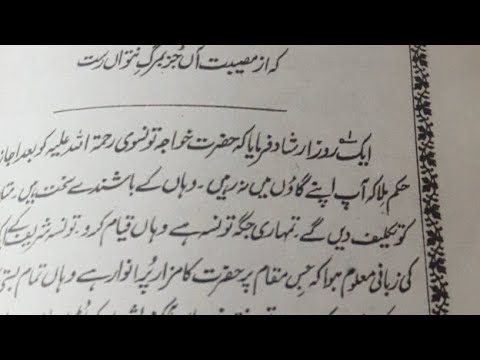 کہ از مصیبت آں جُز بمرگ نتواں رست
ایک روز ارشاد فرمایا کہ حضرت خواجہ تونسوی رحمۃ اللہ علیہ کو بعد اجاز
حکم ملا کہ آپ اپنے گاؤں میں نہ رہیں۔ وہاں کے باشندے سخت ہیں۔
کو تکلیف دیں گے۔ تمہاری جگہ تونسہ ہے وہاں قیام کرو۔ تونسہ شریف کے
کی زبانی معلوم ہوا کہ جس مقام پر حضرت کا مزار پُر انوار ہے وہاں تمام